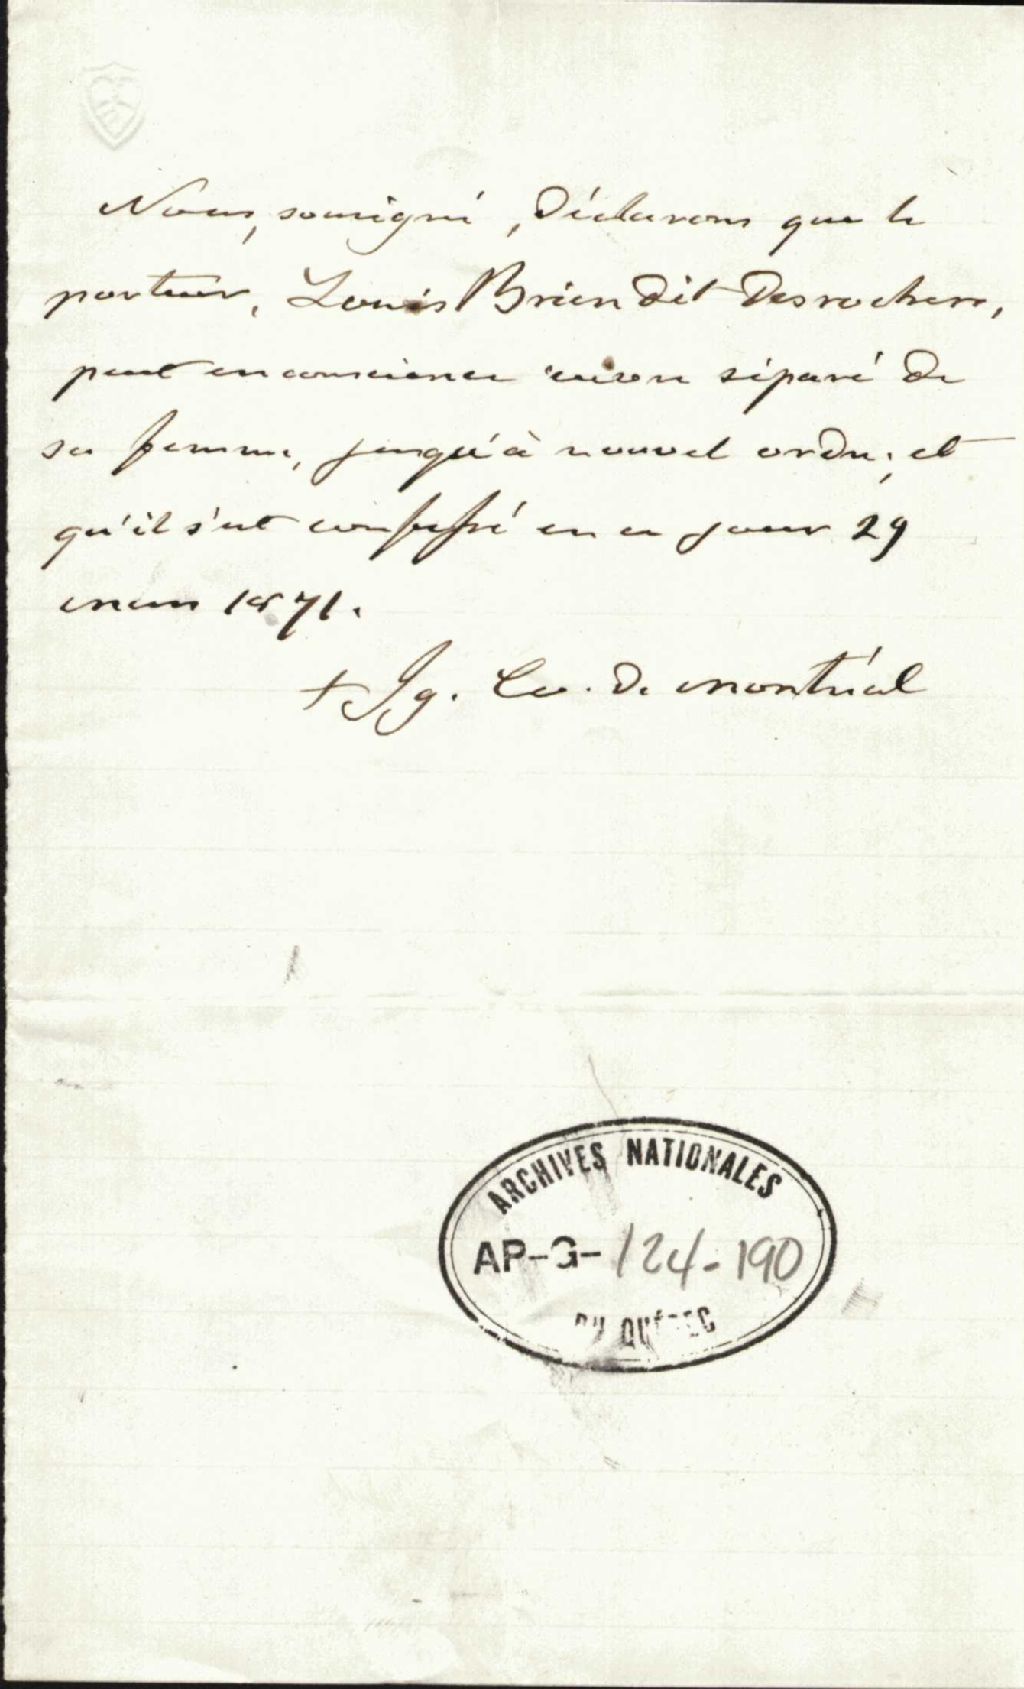 Nous, soussigné, déclarons que le
porteur, Louis Brien dit Desrochers,
peut en conscience vivre séparé de
sa femme, jusqu'à nouvel ordre, et
qu'il s'est confessé en ce jour 29
mars 1871.
+ Ig. Ev. de Montréal
ARCHIVES NATIONALES
AP-G-124-190
DU QUÉBEC